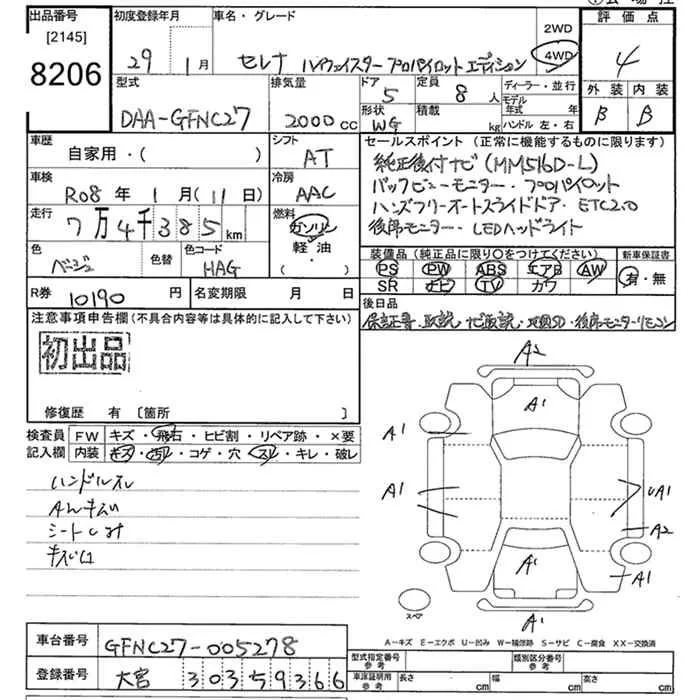 出品番号 初度登録年月 車名・グレード 2WD 評価点
[2145] 29 1月 セレナ ハイウェイスター プロパイロット エディション 4WD 4
8206 型式 排気量 ドア 定員 ディーラー・並行 外装 内装
DAA-GFNC27 2000cc 5 8人 モデル年式 年 B B
形状 積載
WG kg ハンドル 左・右
車歴 シフト セールスポイント (正常に機能するものに限ります)
自家用・( ) AT 純正後付ナビ (MM516D-L)
車検 冷房 バックビューモニター・プロパイロット
R08年 1月(11日) AAC ハンズフリーオートスライドドア・ETC2.0
走行 燃料 後席モニター・LEDヘッドライト
7万4千385km ガソリン
軽・油
( )
色 色替 色コード 装備品 (純正品に限り○をつけてください) 新車保証書
ベージュ HAG PS PW ABS エアB AW 有・無
SR ナビ TV カワ
R券 10190円 名変期限 月 日 後日品
保証書・取説・ナビ取説・地図SD・後席モニターリモコン
注意事項申告欄 (不具合内容等は具体的に記入して下さい)
初出品
修復歴 有 [箇所 ]
検査員 FW キズ・飛石・ヒビ割・リペア跡・×要
記入欄 内装 キズ・汚レ・コゲ・穴・スレ・キレ・破レ
ハンドルスレ
シートしみ
A2
A1
A1
A1 UA1
A2
A1
A1
スペア
A1
A-キズ E-エクボ U-凹み W-補修跡 S-サビ C-腐食 XX-交換済
車台番号 GFNC27-005278
型式指定番号 参考 類別区分番号 参考
登録番号 大宮 30359366
車庫証明用 参考 長さ cm 幅 cm 高さ cm